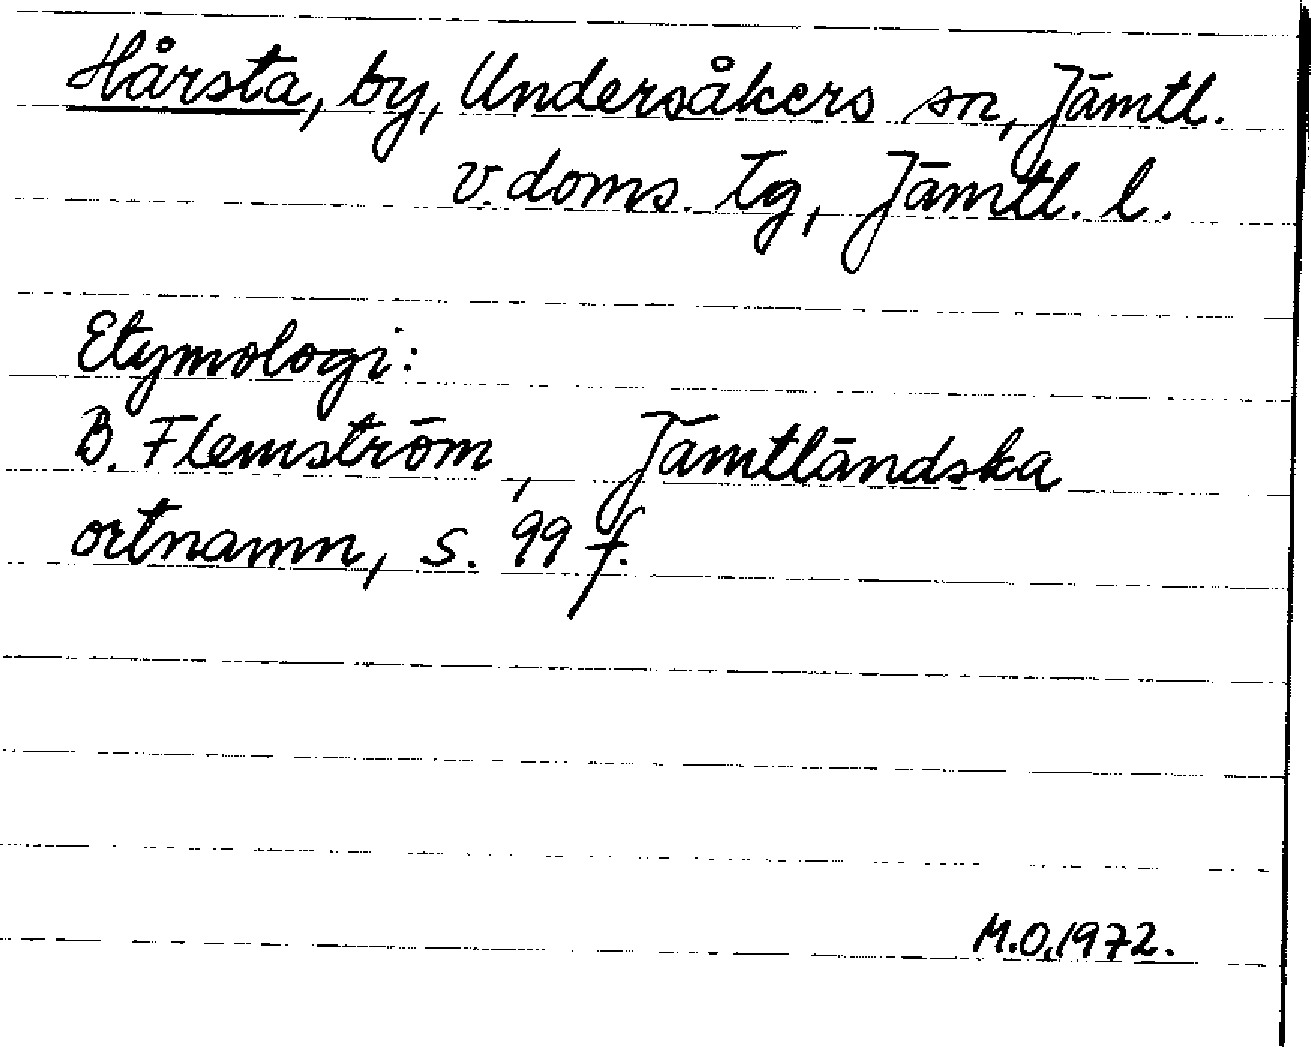 Hårsta, by, Undersåkers sn, Jämtl.
v. doms. tg, Jämtl. l.
Etymologi:
B. Flemström, Jämtländska
ortnamn, s. 99 f.
M.O. 1972.